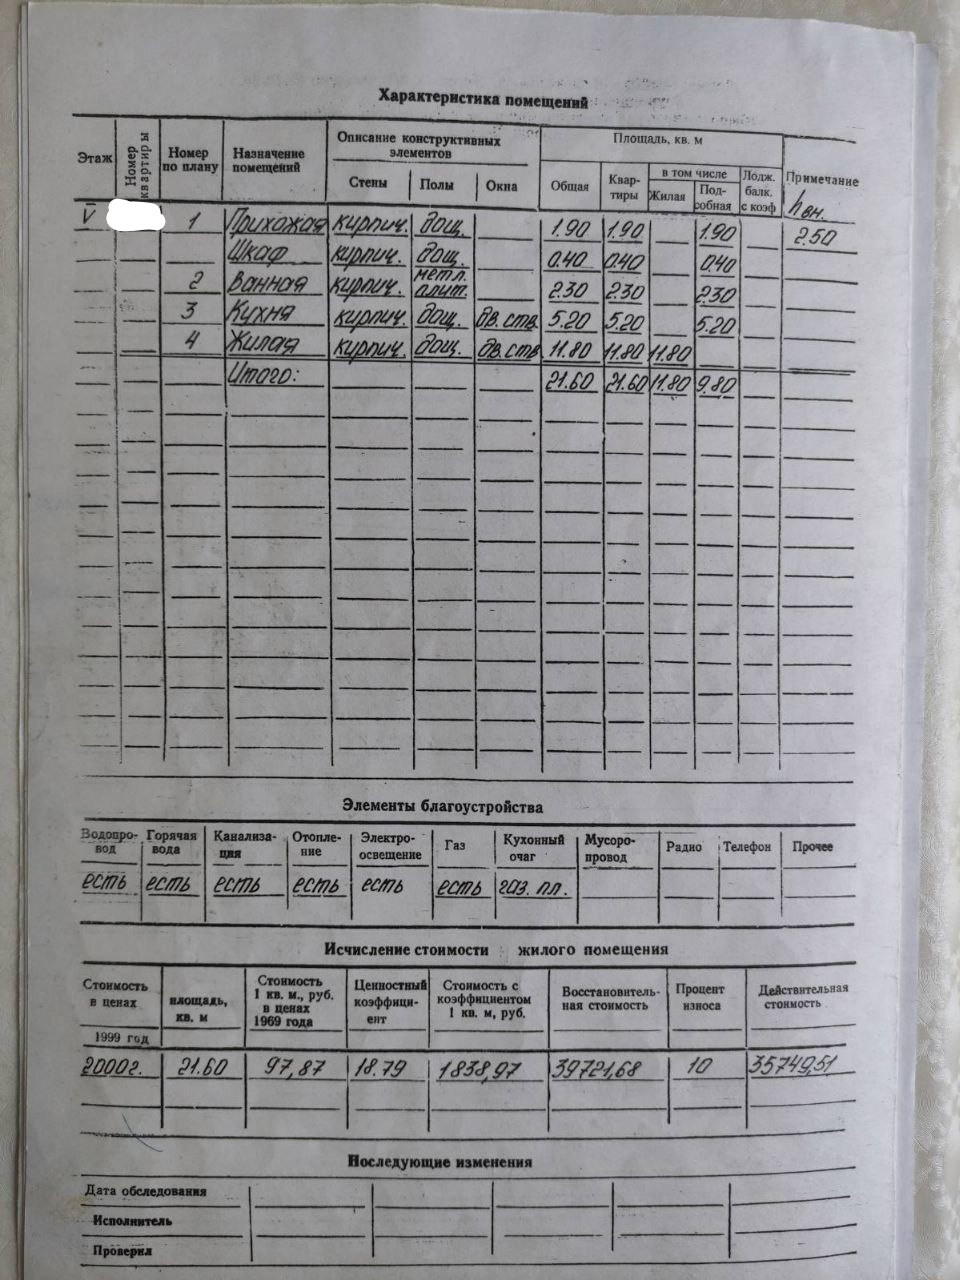 Характеристика помещений
Этаж
Номер квартиры
Номер по плану
Назначение помещений
Описание конструктивных элементов
Стены Полы Окна
Площадь, кв. м
Общая
Квар-
тиры
в том числе
Жилая
Под-
собная
Лодж.
балк.
с коэф
Примечание
hвн.
V 1 Прихожая кирпич. дощ. 1.90 1.90 1.90 2.50
Шкаф кирпич. дощ. 0.40 0.40 0.40
2 Ванная кирпич. метл. плит. 2.30 2.30 2.30
3 Кухня кирпич. дощ. дв. ств 5.20 5.20 5.20
4 Жилая кирпич. дощ. дв. ств 11.80 11.80 11.80
Итого: 21.60 21.60 11.80 9.80
Элементы благоустройства
Водопро-
вод
Горячая
вода
Канализа-
ция
Отопле-
ние
Электро-
освещение
Газ
Кухонный
очаг
Мусоро-
провод
Радио
Телефон
Прочее
есть есть есть есть есть есть газ. пл.
Исчисление стоимости жилого помещения
Стоимость
в ценах
1999 год
площадь,
кв. м
Стоимость
1 кв. м., руб.
в ценах
1969 года
Ценностный
коэффици-
ент
Стоимость с
коэффициентом
1 кв. м, руб.
Восстановитель-
ная стоимость
Процент
износа
Действительная
стоимость
2000г. 21.60 97,87 18.79 1838,97 39721,68 10 35749,51
Последующие изменения
Дата обследования
Исполнитель
Проверил